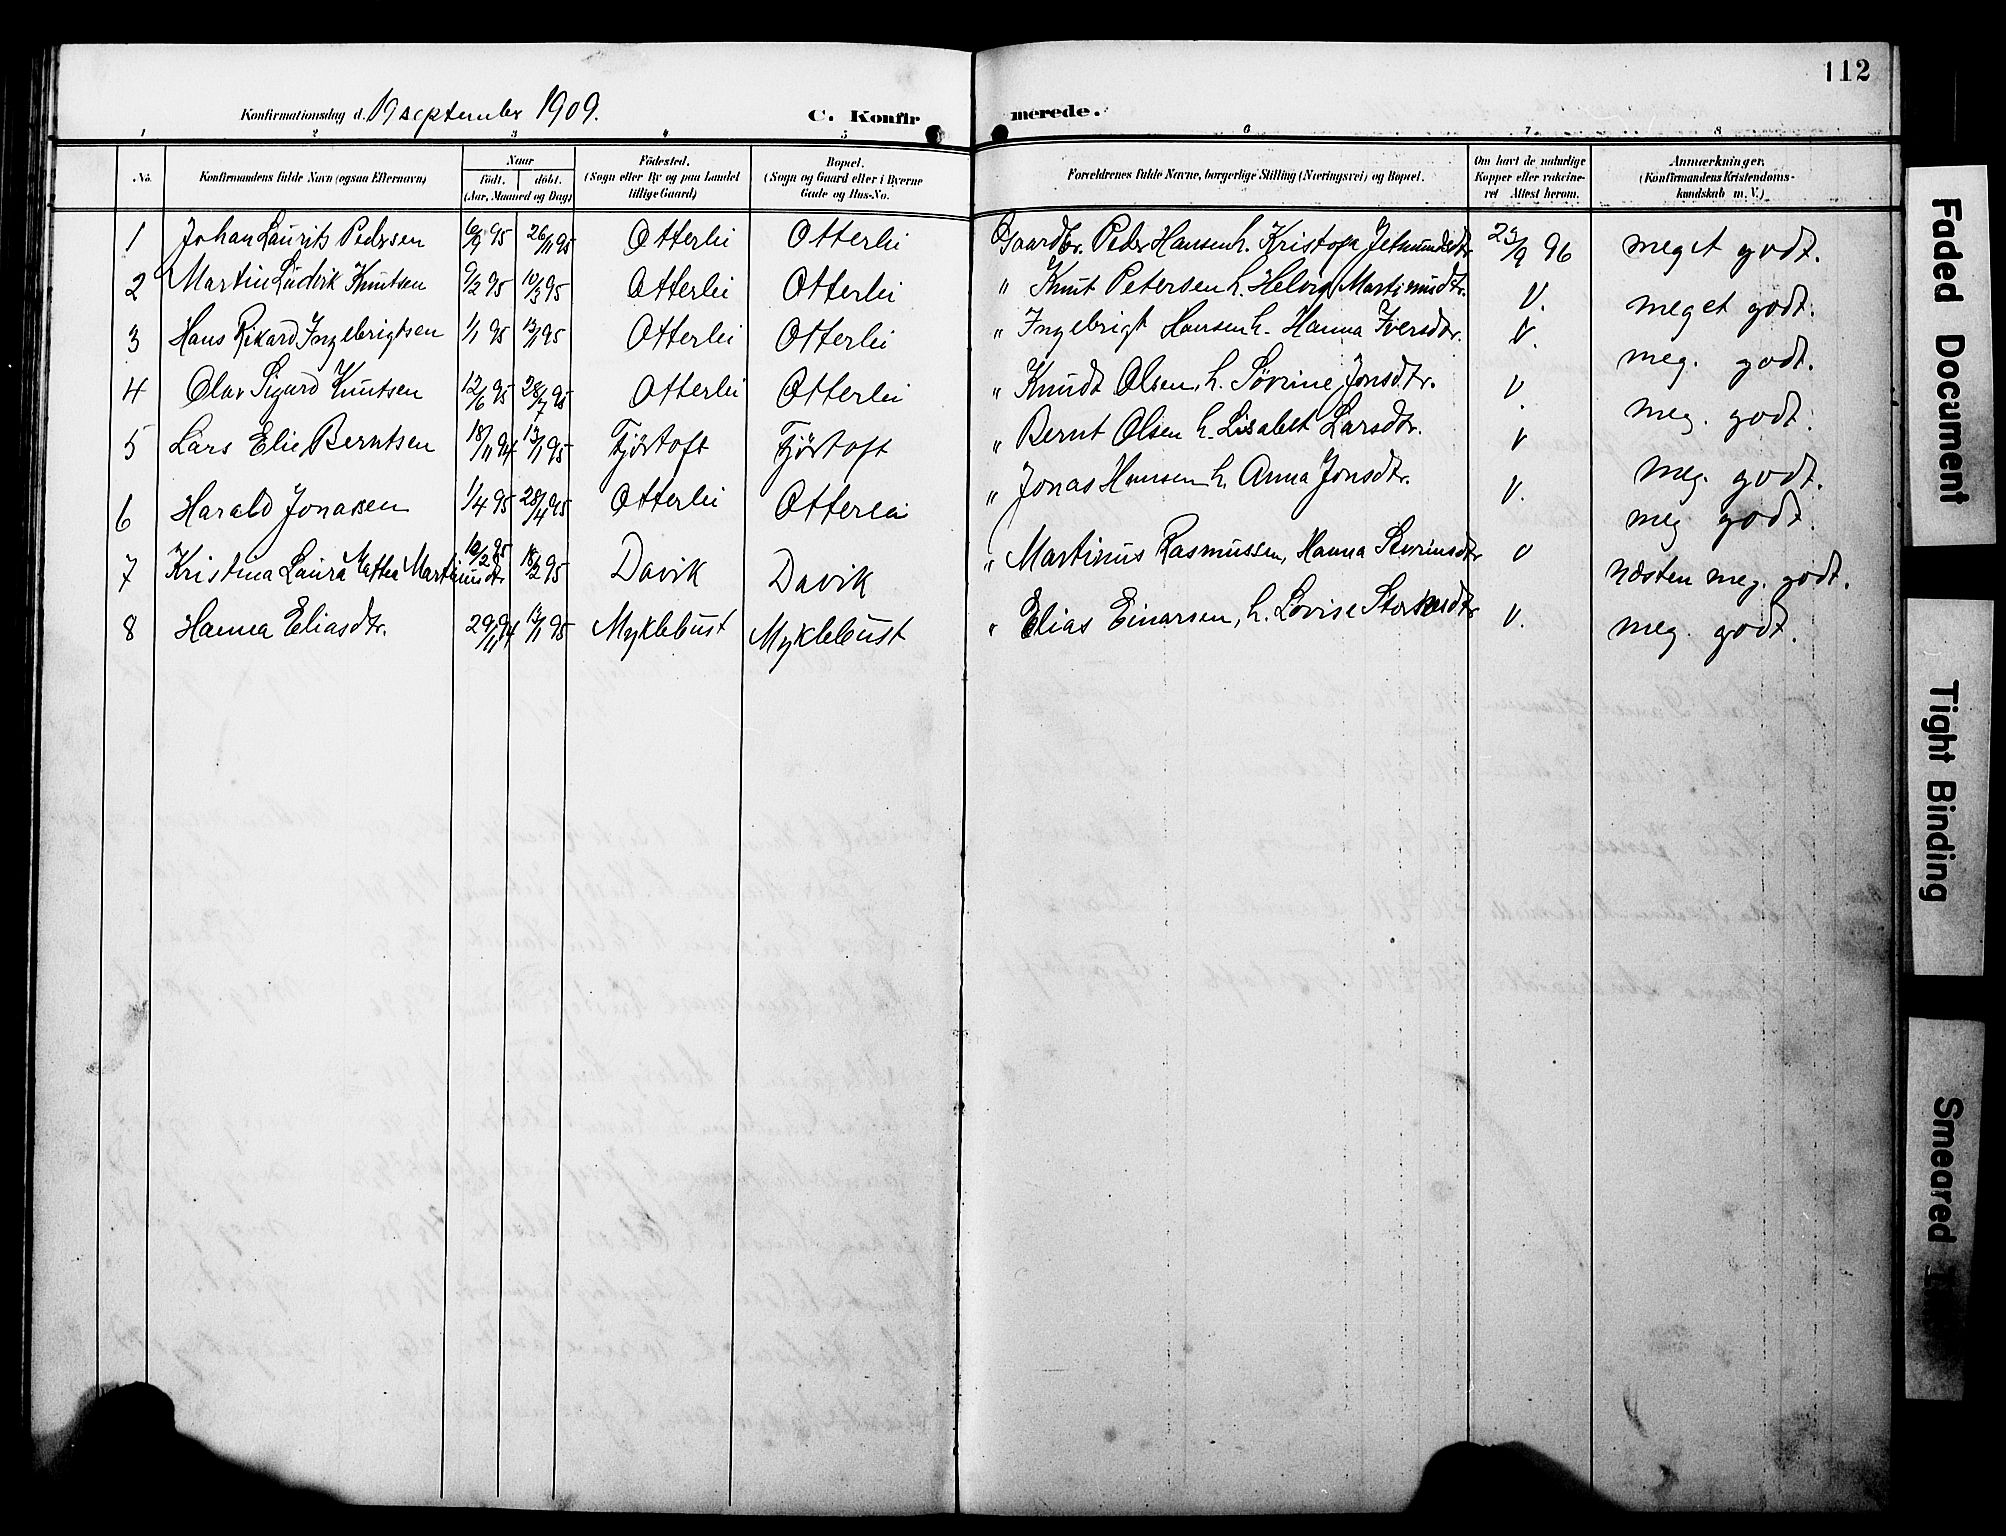 112
Konfirmationsdag d. 19 september 1909. C. Konfirmerede.
1 2 3 4 5 6 7 8
No. Konfirmandens fulde Navn (ogsaa Efternavn) Naar födt. döbt. (Aar, Maaned og Dag) Födested. (Sogn eller By og paa Landet tillige Gaard) Bopæl. (Sogn og Gaard eller i Byerne Gade og Hus-No. Forældrenes fulde Navne, borgerlige Stilling (Næringsvei) og Bopæl. Om havt de naturlige Kopper eller vakcineret Attest herom. Anmærkninger. (Konfirmandens Kristendomskundskab m. V.)
1 Johan Laurits Pedersen 6/9 95 26/11 95 Otterlei Otterlei Gaardbr. Peder Hansen h. Kristofa Jetmundsdtr 23/9 96 meget godt.
2 Martin Ludvik Knutsen 9/2 95 10/3 95 Otterlei Otterlei " Knut Petersen h. Helvig Martinusdtr. V. meget godt.
3 Hans Rikard Ingebrigtsen 1/1 95 13/1 95 Otterlei Otterlei " Ingebrigt Hansen h. Hanna Iversdtr. V. meg. godt.
4 Olav Sigurd Knutsen 12/6 95 28/7 95 Otterlei Otterlei " Knudt Olsen, h. Sørine Jonsdtr. V. meg. godt.
5 Lars Elie Berntsen 18/11 94 13/1 95 Fjörtoft Fjörtoft " Bernt Olsen h. Lisabet Larsdtr. V meg. godt.
6 Harald Jonassen 1/4 95 28/4 95 Otterlei Otterlei " Jonas Hansen h. Anna Jonsdtr. V. meg godt.
7 Kristina Laura Mathea Martinusdtr 10/2 95 18/2 95 Davik Davik " Martinus Rasmussen, Hanna Severinsdtr V næsten meg. godt.
8 Hanna Eliasdtr. 29/11 94 13/1 95 Myklebust Myklebust " Elias Einarsen, h. Lovise V. meg. godt.
Faded Document
Tight Binding
Smeared